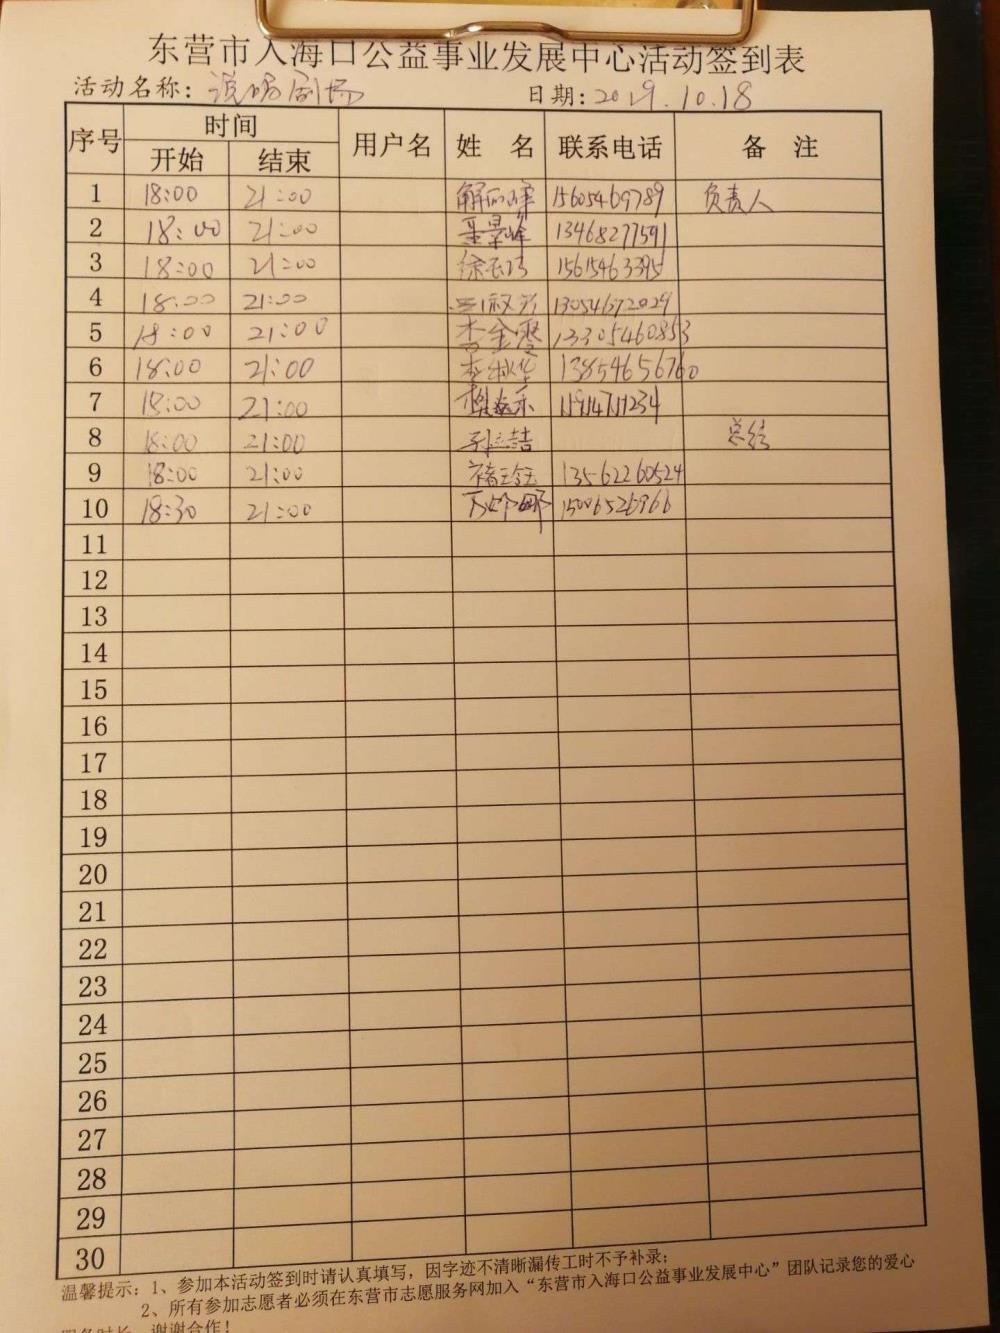 东营市入海口公益事业发展中心活动签到表
活动名称： 剧场 日期：2019.10.18
序号 时间 用户名 姓 名 联系电话 备 注
开始 结束
1 18:00 21:00 15605469789 负责人
2 18:00 21:00 13468277591
3 18:00 21:00 15615463395
4 18:00 21:00 13054672029
5 18:00 21:00 13305460853
6 18:00 21:00 13854656760
7 18:00 21:00
8 18:00 21:00 总结
9 18:00 21:00 13562260524
10 18:30 21:00 15006526966
11
12
13
14
15
16
17
18
19
20
21
22
23
24
25
26
27
28
29
30
温馨提示：1、参加本活动签到时请认真填写，因字迹不清晰漏传工时不予补录；
2、所有参加志愿者必须在东营市志愿服务网加入“东营市入海口公益事业发展中心”团队记录您的爱心
服务时长，谢谢合作！